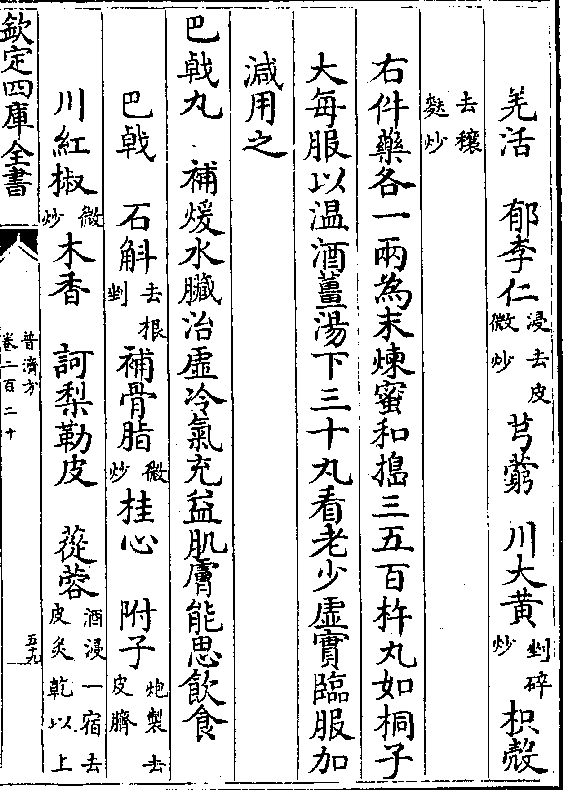 羌活　郁李仁浸去皮微炒　芎藭　川大黄剉碎炒　枳殻
去穰麩炒
右件藥各一兩為末煉蜜和搗三五百杵丸如桐子
大每服以温酒薑湯下三十丸看老少虚實臨服加
減用之
巴戟丸　補煖水臟治虚冷氣充益肌膚能思飲食
巴戟　石斛去根剉　補骨脂微炒　桂心　附子炮製去皮臍
川紅椒微炒　木香　訶梨勒皮　蓯蓉酒浸一宿去皮炙乾以上
欽定四庫全書
普濟方
卷二百二十
五十九